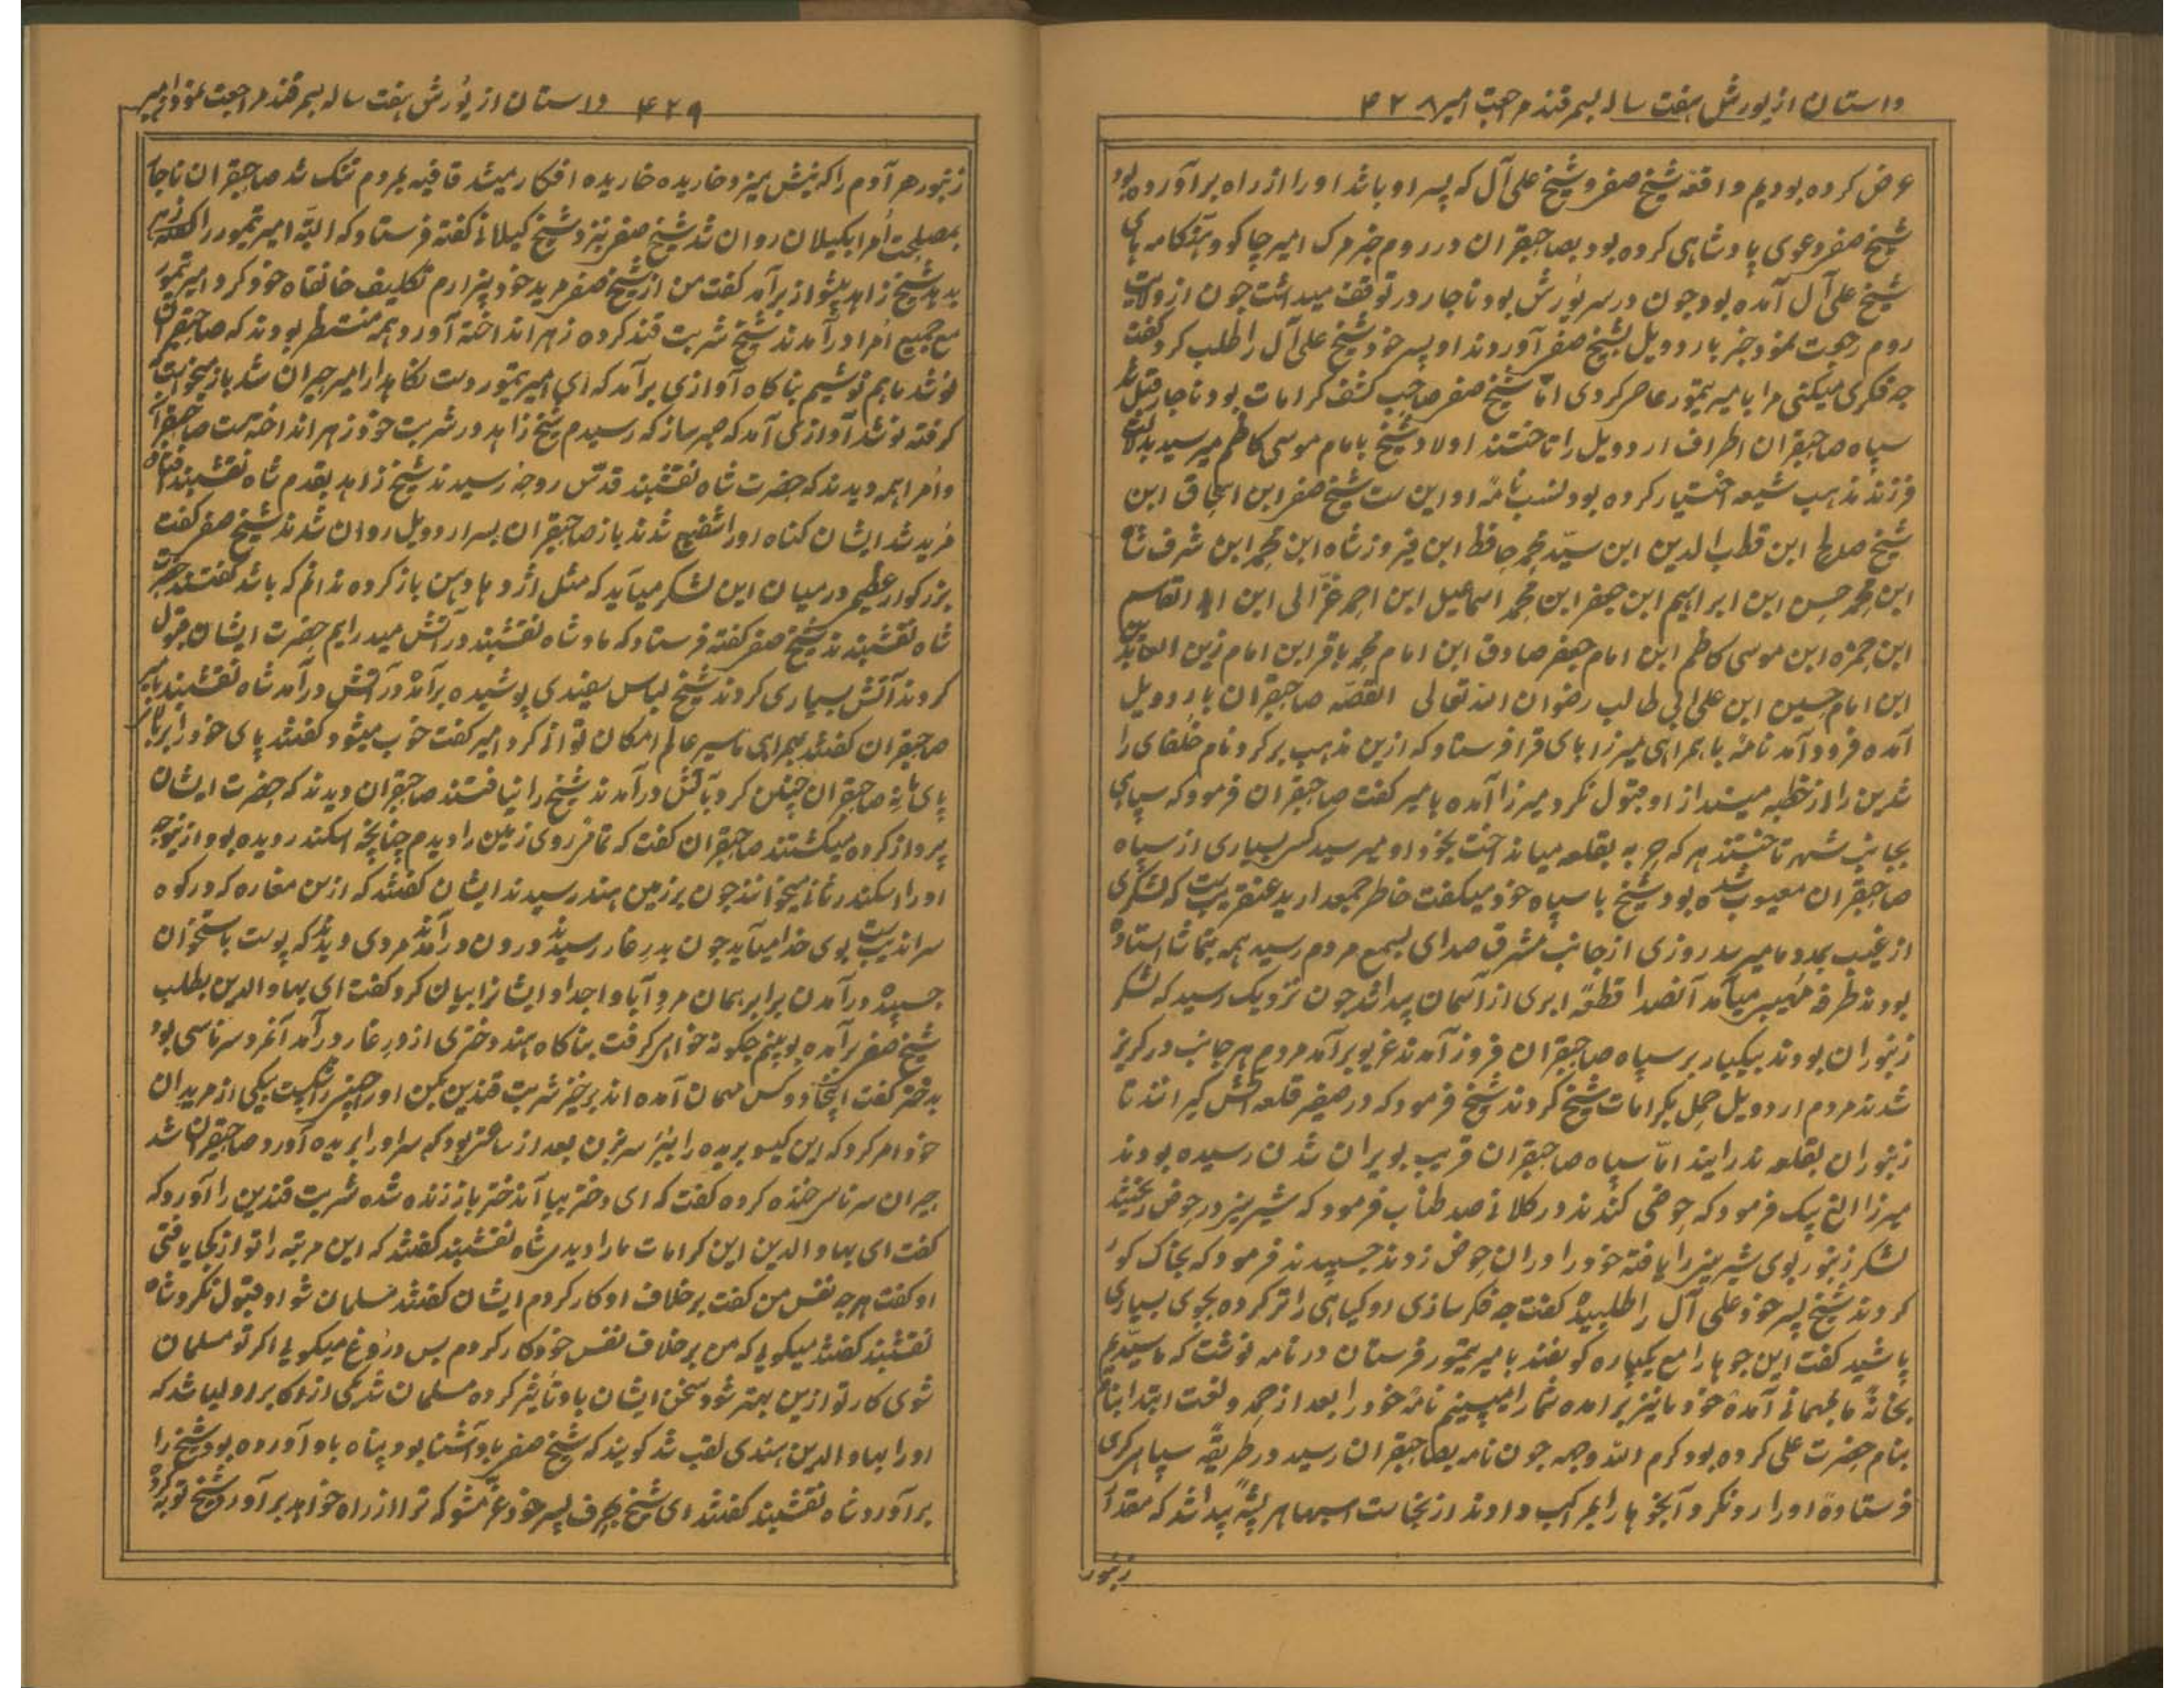 داستان از یورش هفت ساله بسمرقند مراجعت امیر ۴۲۸
عرض کرده بودیم واقعهٔ شیخ صفر و شیخ علی آل که پسر او باشد او را از راه برآورده بود
شیخ صفر دعوی پادشاهی کرده بود بصاحبقران در روم خبر مرک امیر چاکو و هنکامه های
شیخ علی آل آمده بود چون در سر یورش بود ناچار در توقف میداشت چون از ولایت
روم رجعت نمود خبر باردویل بشیخ صفر آوردند او پسر خود شیخ علی آل را طلب کرد کفت
چه فکری میکنی مرا با میر تیمور عاصر کردی امّا شیخ صفر صاحب کشف کرامات بود ناچار
سپاه صاحبقران اطراف اردویل را تاختند اولاد شیخ بامام موسی کاظم میرسید
فرزند مذهب شیعه اختیار کرده بود نسب نامهٔ او این ست شیخ صفر ابن اسحاق ابن
شیخ صلاح ابن قطب الدین ابن سیّد محمد حافظ ابن فیروز شاه ابن محمد ابن شرف شاه
ابن محمد حسن ابن ابراهیم ابن جعفر ابن محمد اسماعیل ابن احمد غزّالی ابن ابو القاسم
ابن حمزه ابن موسی کاظم ابن امام جعفر صادق ابن امام محمد باقر ابن امام زین العابدین
ابن امام حسین ابن علی ابی طالب رضوان الله تعالی القصّه صاحبقران باردویل
آمده فرود آمد نامهٔ باهمراهی میرزا بای قرا فرستاد که ازین مذهب برکرد و نام خلفای را
شدین را از خطبه مینداز او قبول نکرد میرزا آمده بامیر کفت صاحبقران فرمود که سپاهی
بجانب شهر تاختند هر که چوبه بقلعه میانداخت بخود او میرسید کس بسیاری از سپاه
صاحبقران معیوب شده بود شیخ با سپاه خود میکفت خاطر جمعدارید عنقریب ست که لشکری
از غیب بمدد ما میرسد روزی از جانب مشرق صدای بسمع مردم رسید همه بتماشا استاده
بودند طرفه مهیب میآمد آنصدا قطعهٔ ابری از آسمان پیدا شد چون نزدیک رسید که لشکر
زنبوران بودند بیکبار بر سپاه صاحبقران فرود آمدند غریو برآمد مردم هر جانب در کریز
شدند مردم اردویل حمل بکرامات شیخ کردند شیخ فرمود که در صفیر قلعه آتش کیرانند تا
زنبوران بقلعه ندرایند امّا سپاه صاحبقران قریب بویران شدن رسیده بودند
میرزا الغ بیک فرمود که حوضی کندند در کلانی صد طناب فرمود که شیرینی در حوض ریختند
لشکر زنبور بوی شیرینی را یافته خود را در آن حوض زدند چسپیدند فرمود که بخاک کور
کردند شیخ پسر خود علی آل را طلبیده کفت چه فکر سازی او کیاهی را تر کرده بجوی بسیاری
پاشید کفت این جوها را مع یکپاره کوسفند بامیر تیمور فرستان در نامه نوشت که ما سیّدیم
بخانهٔ ما بمهمانی آمدهٔ خود ما نیز برآمده شما را میبینیم نامهٔ خود را بعد از حمد و نعت ابتدا بنام
بنام حضرت علی کرده بود کرم الله وجهه چون نامه بصاحبقران رسید در طریقهٔ سپاهرکری
فرستادهٔ او را رد نکرد آنجوها را بمراکب دادند از نجاست اسبها هر پشهٔ پیدا شد که مقدار
زنبور
۴۲۹ داستان از یورش هفت ساله بسمرقند مراجعت نمودن امیر
زنبور هر آدم را که نیش میزد خاریده خاریده افکار میشد قافیه بمردم تنک شد صاحبقران ناچار
بمصلحت اُمرا بکیلان روان شد شیخ صفر نیز نزد شیخ کیلانی کفته فرستاد که البتّه امیر تیمور را زهر
بدهد شیخ زاهد پیشواز برآمد کفت من از شیخ صفر مرید خود بیزارم تکلیف خانقاه خود کرد امیر تیمور
مع جمیع اُمرا درآمدند شیخ شربت قند کرده زهر انداخته آورد همه منتظر بودند که صاحبقران
نوشد ما هم نوشیم بناکاه آوازی برآمد که ای امیر تیمور دست نکاهدار امیر حیران شد باز میخواست
کرفته نوشد آوازی آمد که صبر ساز که رسیدم شیخ زاهد در شربت خود زهر انداخته ست صاحبقران
و اُمرا همه دیدند که حضرت شاه نقشبند قدّس روحه رسیدند شیخ زاهد بقدم شاه نقشبند افتاده
مُرید شد ایشان کناه او را شفیع شدند باز صاحبقران بسر اردویل روان شدند شیخ صفر کفت
بزرکوار عظیم در میان این لشکر میآید که مثل اژدها دهن باز کرده ندانم که باشد کفتند حضرت
شاه نقشبندند شیخ صفر کفته فرستاد که ما و شاه نقشبند در آتش میدرایم حضرت ایشان قبول
کردند آتش بسیاری کردند شیخ لباس سفیدی پوشیده برآمد در آتش درآمد شاه نقشبند بامیر
صاحبقران کفتند همرای ما سیر عالم امکان توانی کرد امیر کفت خوب میشود کفتند پای خود را بر بالای
پای ما نه صاحبقران چنین کرد بآتش درآمدند شیخ را نیافتند صاحبقران دیدند که حضرت ایشان
پرواز کرده میکشتند صاحبقران کفت که تمام روی زمین را دیدم چنانچه اسکندر دیده بود ازینوجه
او را اسکندر ثانی میخوانند چون بر زمین هند رسیدند ایشان کفتند که ازین مغاره که در کوه
سراندیب ست بوی خدا میآید چون بدر غار رسیدند درون درآمدند مردی دیدند که پوست باستخوان
چسپیده درآمدن برابر همان مرد آبا و اجداد ایشانرا بیان کرد کفت ای بهاوالدین بطلب
شیخ صفر برآمده بوینم چکونه خواهی کرفت بناکاه هندو دختری از در غار درآمد آنمرد سرتاسی بود
بدختر کفت اینجا دو کس مهمان آمده اند برخیز شربت قندین بکن او راهچیز یکی از مریدان
خود امر کرد که این کیسو بریده را بتیز سر بزن بعد از ساعتی بود که سر او را بریده آورد صاحبقران شد
حیران سرتاسی خنده کرده کفت که ای دختر بیا آندختر باز زنده شده شربت قندین را آورد که
کفت ای بهاوالدین این کرامات ما را دیدی شاه نقشبند کفتند که این مرتبه را تو از کجا یافتی
او کفت هرچه نفس من کفت برخلاف او کار کردم ایشان کفتند مسلمان شو او قبول نکرد شاه
نقشبند کفتند میکویی که من برخلاف نفس خود کار کردم پس دروغ میکویی اکر تو مسلمان
شوی کار تو ازین بهتر شود سخن ایشان باو تأثیر کرده مسلمان شد یکی از اکابر اولیا شد که
او را بهاوالدین هندی لقب شد کویند که شیخ صفر باو آشنا بود پناه باو آورده بود شیخ را
برآورد شاه نقشبند کفتند ای شیخ بحرف پسر خود غرّه مشو که ترا از راه خواهد برآورد شیخ توبه کرد